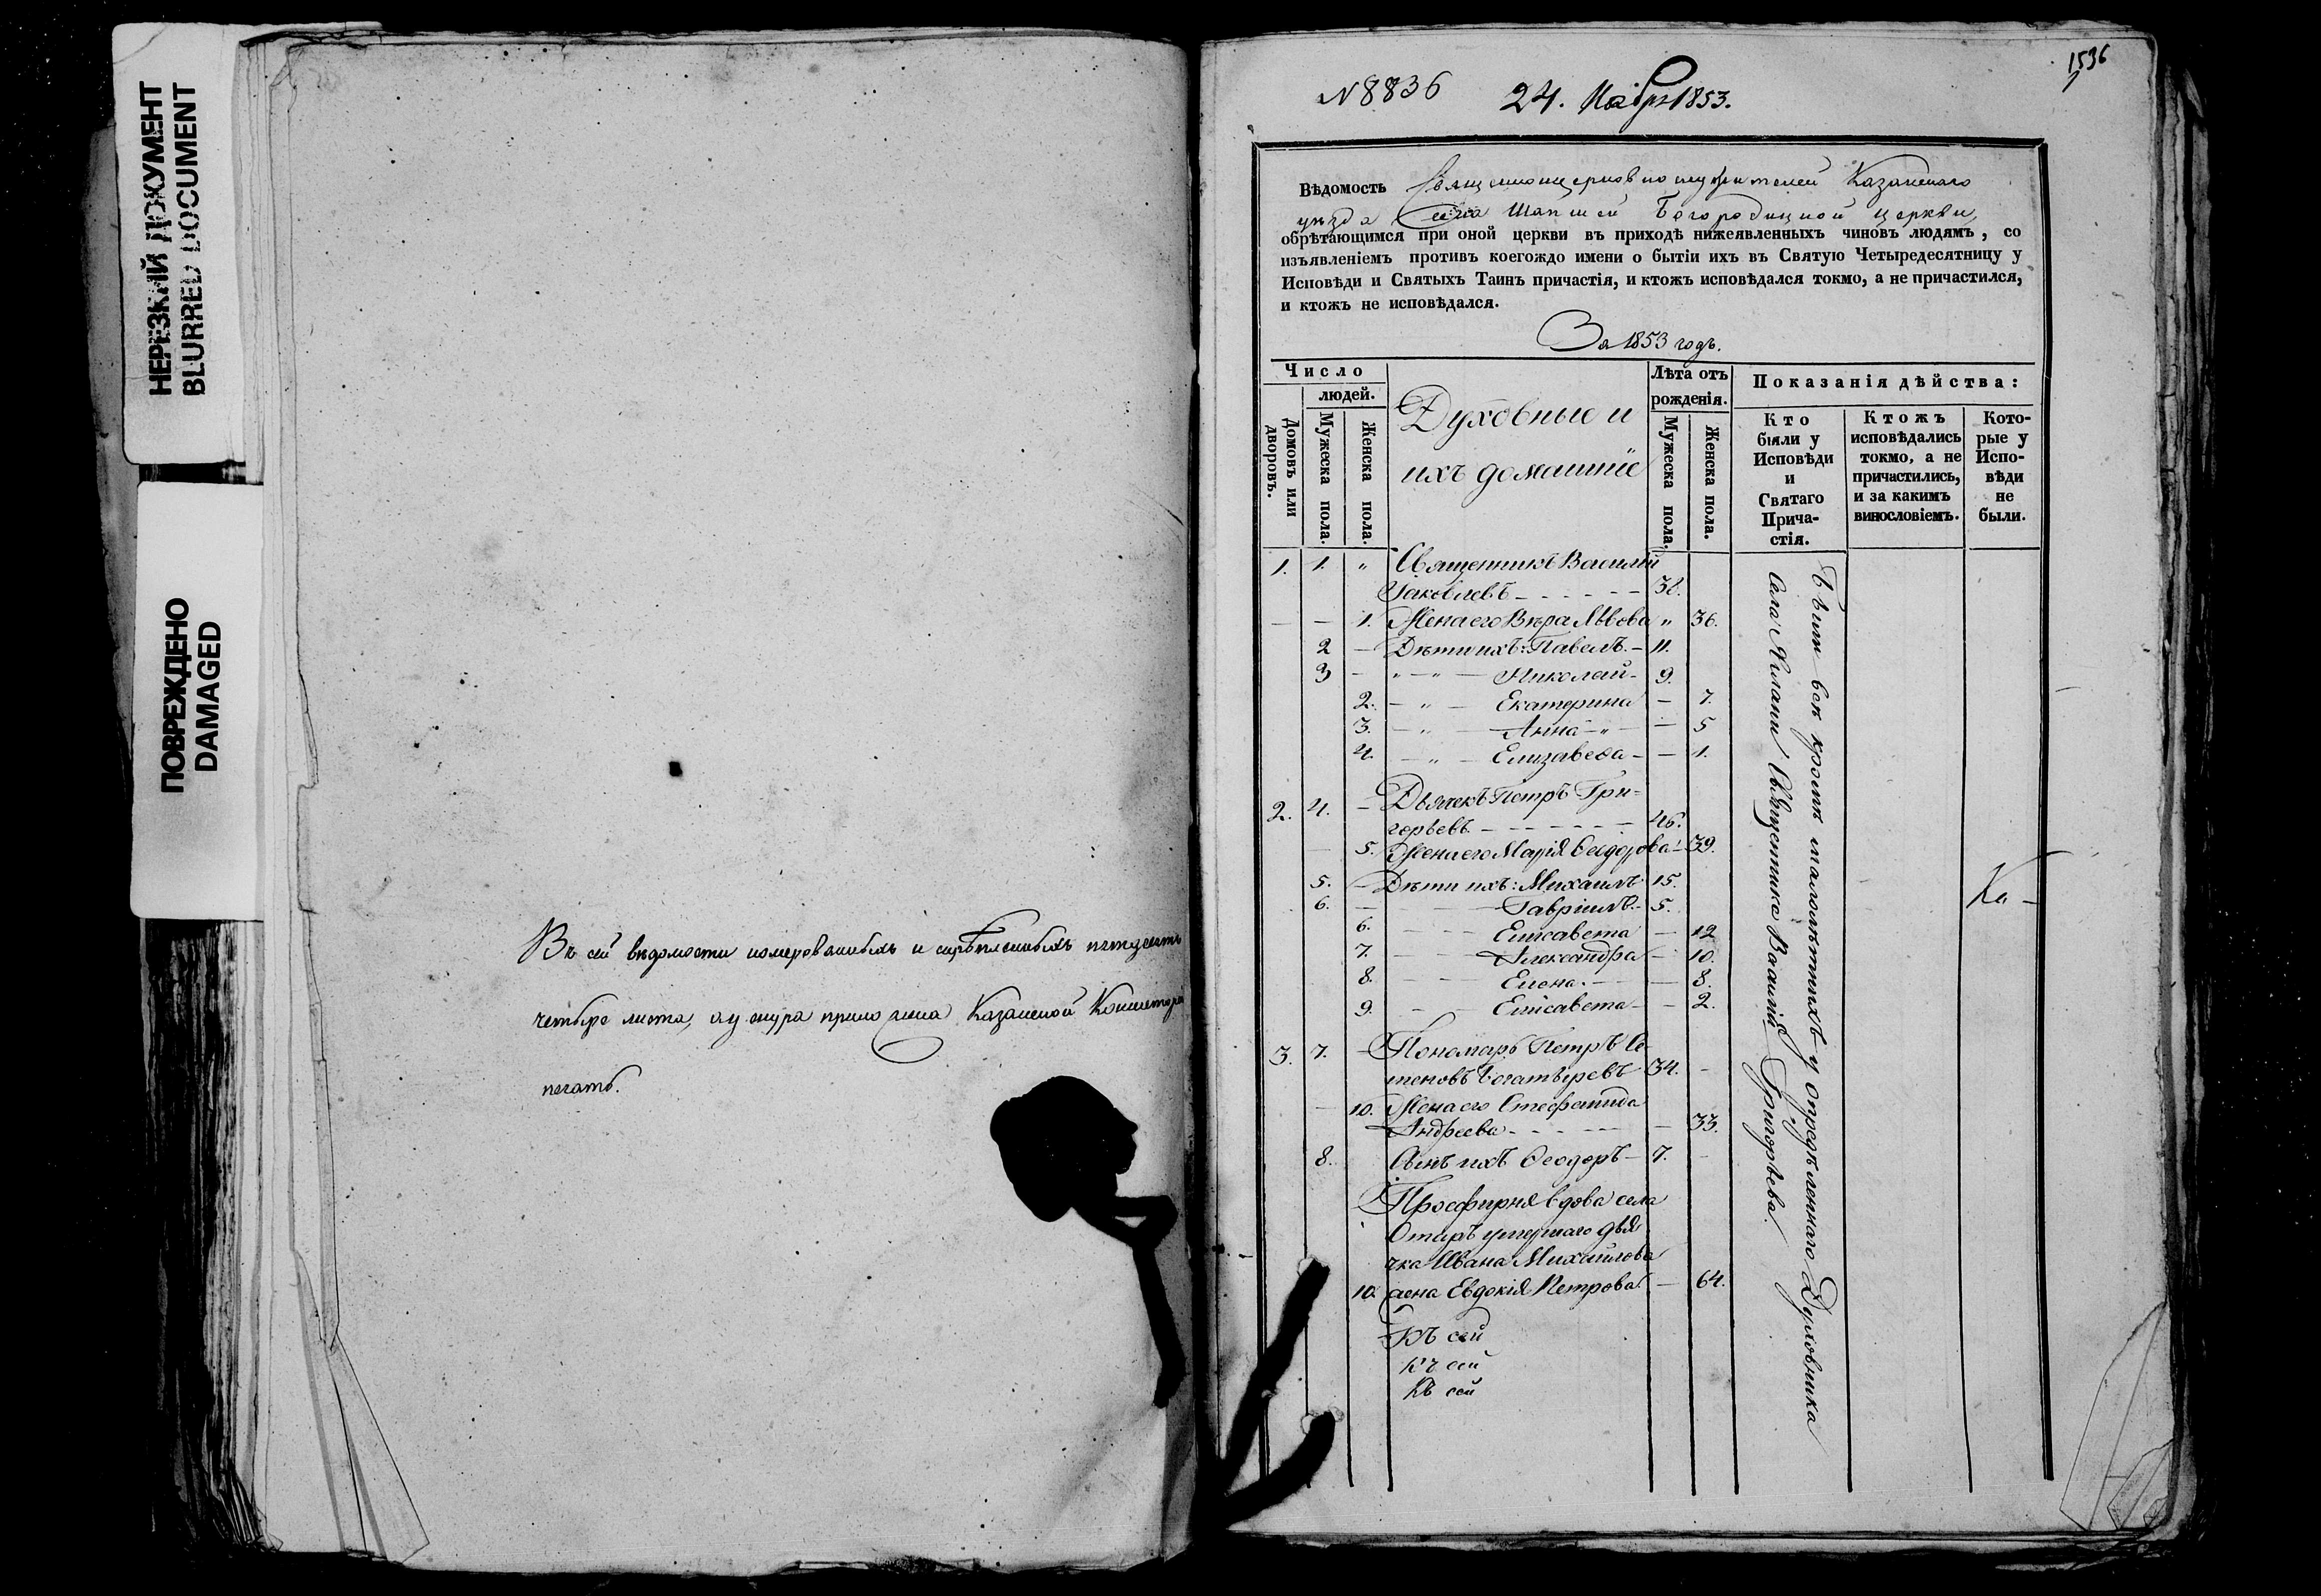 НЕРЕЗКИЙ ДОКУМЕНТ
BLURRED DOCUMENT
ПОВРЕЖДЕНО
DAMAGED
Въ сей вѣдомости номерованныхъ и скрѣпленныхъ пятдесятъ
четыре листа, а у снура приложена Казанской Консистор
печать.
1536
N 8836 24. Ноября 1853.
Вѣдомость Священноцерковнослужителей Казанскаго
уѣзда Села Шапшей Богородицкой церкви,
обрѣтающимся при оной церкви въ приходѣ нижеявленныхъ чиновъ людямъ, со
изъявленіемъ противъ коегождо имени о бытіи ихъ въ Святую Четыредесятницу у
Исповѣди и Святыхъ Таинъ причастія, и ктожъ исповѣдался токмо, а не причастился,
и ктожъ не исповѣдался.
За 1853 годъ.
Число
людей.
Домовъ или дворовъ.
Мужеска пола.
Женска пола.
Духовные и
ихъ домашніе
Лѣта отъ
рожденія.
Мужеска пола.
Женска пола.
Показанія дѣйства:
Кто
были у
Исповѣди
и
Святаго
Прича-
стія.
Ктожъ
исповѣдались
токмо, а не
причастились,
и за какимъ
винословіемъ.
Кото-
рые у
Испо-
вѣди
не
были.
1. 1. " Священникъ Василій
Іаковлевъ - - - - - 38.
— — 1. Жена его Вѣра Львова " 36.
2 — Дѣти ихъ: Павелъ. - 11.
3 - " - " — Николай - 9.
2. - " — Екатерина — 7.
3. - " — Анна - " — 5
4. - " — Елизавеѳа - — 1.
2. 4. - Дьячекъ Петръ Гри-
горьевъ - - - - - 46.
5. Жена его Марія Ѳеодорова - 39.
5. - Дѣти ихъ: Михаилъ 15.
6. — Гавріилъ. - 5.
6. — Елисавета — 12
7. — Александра — 10.
8. — Елена. — 8.
9. — Елисавета - — 2.
3. 7. - Пономарь Петръ Се-
меновъ Богатыревъ 34. -
— 10. Жена его Стефанида
Андреева - - - - — 33.
8. Сынъ ихъ Ѳеодоръ - 7. -
Просфирня вдова села
Отаръ умершаго дья-
чка Ивана Михайлова
10. жена Евдокія Петрова. — 64.
Къ сей
Къ сей
Къ сей
Были всѣ кромѣ малолѣтнихъ у опредѣленнаго Духовника
Села Священника Василія Григорьева.
Ка -